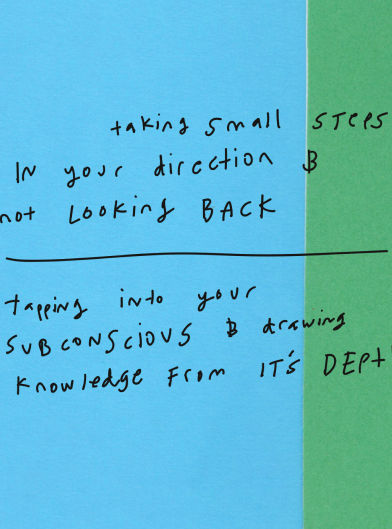 taking small STEPS
IN your direction &
not LOOKing BACK
tapping into your
SUBCONSCIOUS & drawing
Knowledge From IT'S DEPT